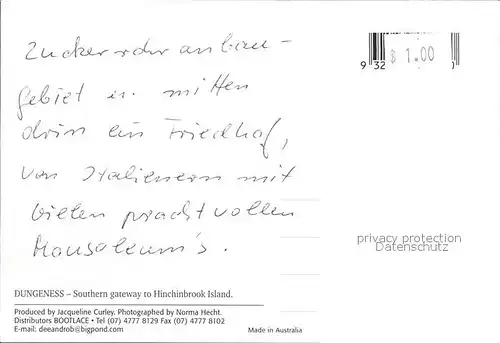 Zuckerrohranbau-
gebiet u. mitten
drin ein Friedhof,
von Italienern mit
vielen prachtvollen
Mausoleum's.
$ 1.00
9 32
privacy protection
Datenschutz
DUNGENESS – Southern gateway to Hinchinbrook Island.
Produced by Jacqueline Curley. Photographed by Norma Hecht.
Distributors BOOTLACE • Tel (07) 4777 8129 Fax (07) 4777 8102
E-mail: deeandrob@bigpond.com
Made in Australia